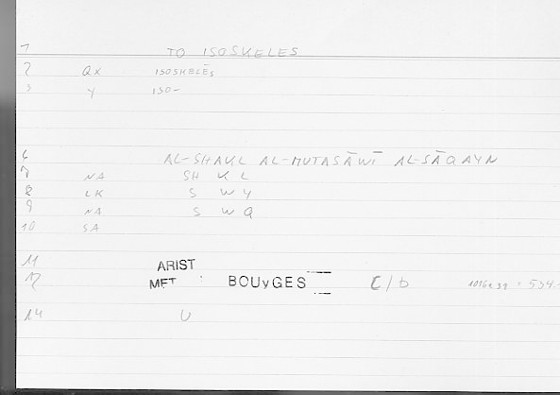 1 TO ISOSKELES
2 QX ISOSKELĒS
3 Y ISO-
6 AL-SHAKL AL-MUTASĀWĪ AL-SĀQAYN
7 NA SH K L
8 LK S W Y
9 NA S W Q
10 SA
11 ARIST
12 MET BOUYGES C/b
14 U